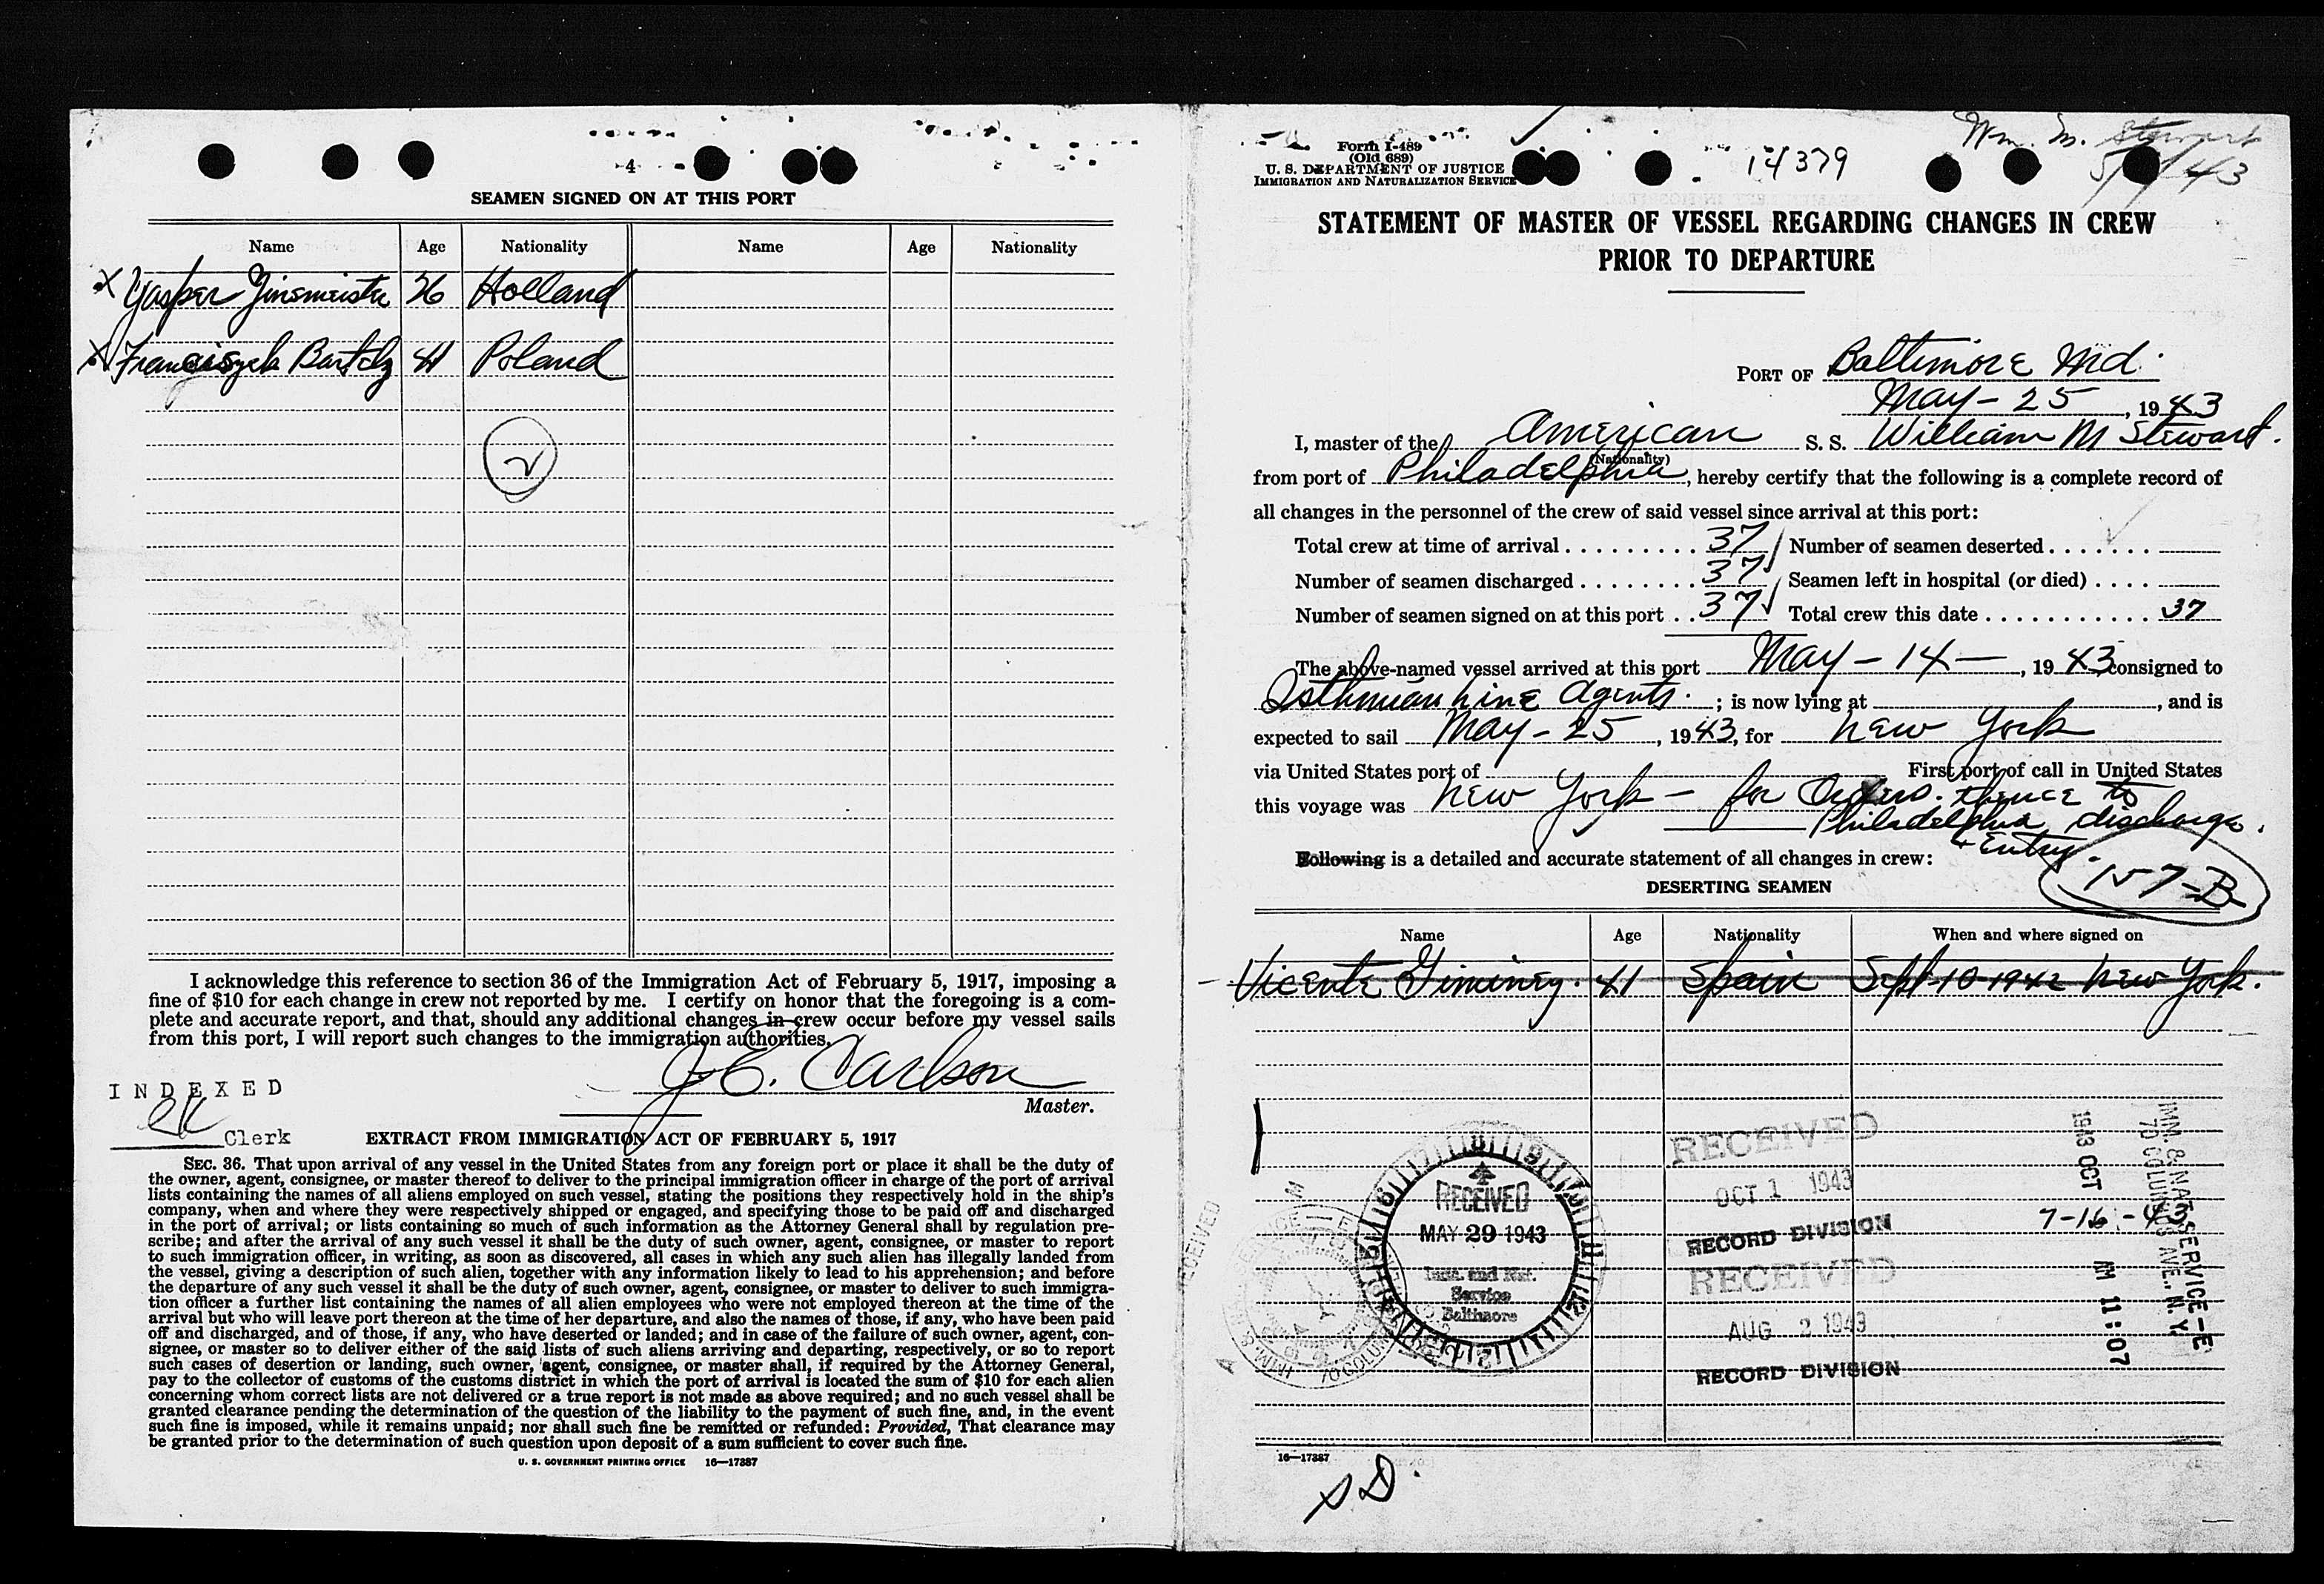 -4-
SEAMEN SIGNED ON AT THIS PORT
Name Age Nationality Name Age Nationality
X Yasper Ginsmeister 36 Holland
X Franciszek Bartelz 41 Poland
2
I acknowledge this reference to section 36 of the Immigration Act of February 5, 1917, imposing a
fine of $10 for each change in crew not reported by me. I certify on honor that the foregoing is a com-
plete and accurate report, and that, should any additional changes in crew occur before my vessel sails
from this port, I will report such changes to the immigration authorities.
J. E. Carlson
Master.
INDEXED
Clerk
EXTRACT FROM IMMIGRATION ACT OF FEBRUARY 5, 1917
SEC. 36. That upon arrival of any vessel in the United States from any foreign port or place it shall be the duty of
the owner, agent, consignee, or master thereof to deliver to the principal immigration officer in charge of the port of arrival
lists containing the names of all aliens employed on such vessel, stating the positions they respectively hold in the ship's
company, when and where they were respectively shipped or engaged, and specifying those to be paid off and discharged
in the port of arrival; or lists containing so much of such information as the Attorney General shall by regulation pre-
scribe; and after the arrival of any such vessel it shall be the duty of such owner, agent, consignee, or master to report
to such immigration officer, in writing, as soon as discovered, all cases in which any such alien has illegally landed from
the vessel, giving a description of such alien, together with any information likely to lead to his apprehension; and before
the departure of any such vessel it shall be the duty of such owner, agent, consignee, or master to deliver to such immigra-
tion officer a further list containing the names of all alien employees who were not employed thereon at the time of the
arrival but who will leave port thereon at the time of her departure, and also the names of those, if any, who have been paid
off and discharged, and of those, if any, who have deserted or landed; and in case of the failure of such owner, agent, con-
signee, or master so to deliver either of the said lists of such aliens arriving and departing, respectively, or so to report
such cases of desertion or landing, such owner, agent, consignee, or master shall, if required by the Attorney General,
pay to the collector of customs of the customs district in which the port of arrival is located the sum of $10 for each alien
concerning whom correct lists are not delivered or a true report is not made as above required; and no such vessel shall be
granted clearance pending the determination of the question of the liability to the payment of such fine, and, in the event
such fine is imposed, while it remains unpaid; nor shall such fine be remitted or refunded: Provided, That clearance may
be granted prior to the determination of such question upon deposit of a sum sufficient to cover such fine.
U. S. GOVERNMENT PRINTING OFFICE 16—17387
Form I-489
(Old 689)
U. S. DEPARTMENT OF JUSTICE
IMMIGRATION AND NATURALIZATION SERVICE
14379
Wm. M. Stewart
STATEMENT OF MASTER OF VESSEL REGARDING CHANGES IN CREW
PRIOR TO DEPARTURE
PORT OF Baltimore Md.
May - 25, 1943
I, master of the American S. S. William M Stewart.
(Nationality)
from port of Philadelphia, hereby certify that the following is a complete record of
all changes in the personnel of the crew of said vessel since arrival at this port:
Total crew at time of arrival 37 Number of seamen deserted
Number of seamen discharged 37 Seamen left in hospital (or died)
Number of seamen signed on at this port 37 Total crew this date 37
The above-named vessel arrived at this port May - 14 -, 1943 consigned to
Isthmian Line Agents.; is now lying at , and is
expected to sail May - 25, 1943, for New York
via United States port of First port of call in United States
this voyage was New York - for Orders. thence to
Philadelphia discharge.
+ Entry
Following is a detailed and accurate statement of all changes in crew:
157-B
DESERTING SEAMEN
Name Age Nationality When and where signed on
Vicente Giminez. 41 Spain Sept-10-1942 New York.
RECEIVED
OCT 1 1943
RECORD DIVISION
RECEIVED
AUG 2 1943
RECORD DIVISION
7-16-43
RECEIVED
MAY 29 1943
Imm. and Nat.
Service
Baltimore
IMM. & NAT. SERVICE-E
70 COLUMBUS AVE., N. Y.
1943 OCT AM 11:07
16—17387